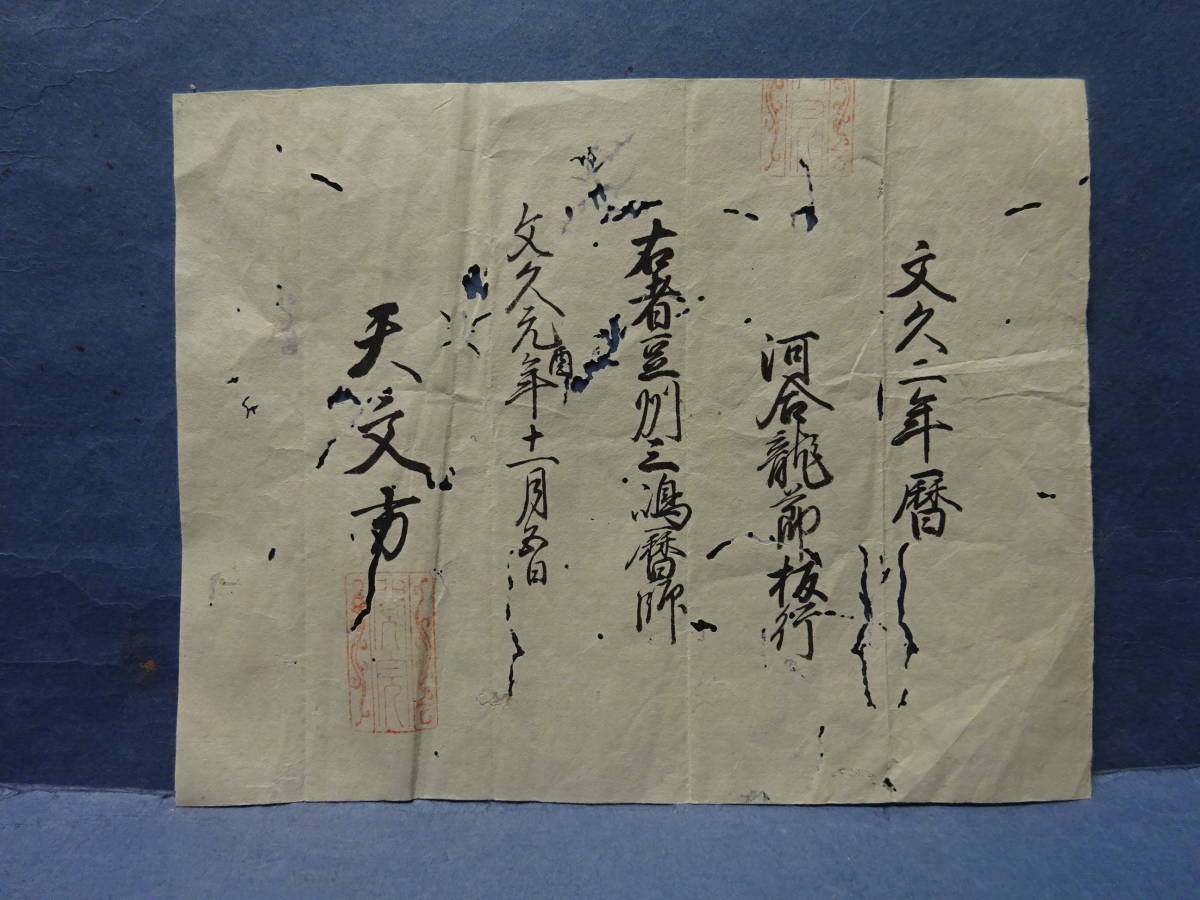 文久二年暦
河合龍節板行
右者豆州三嶋暦師
文久元年酉十一月五日
天文方